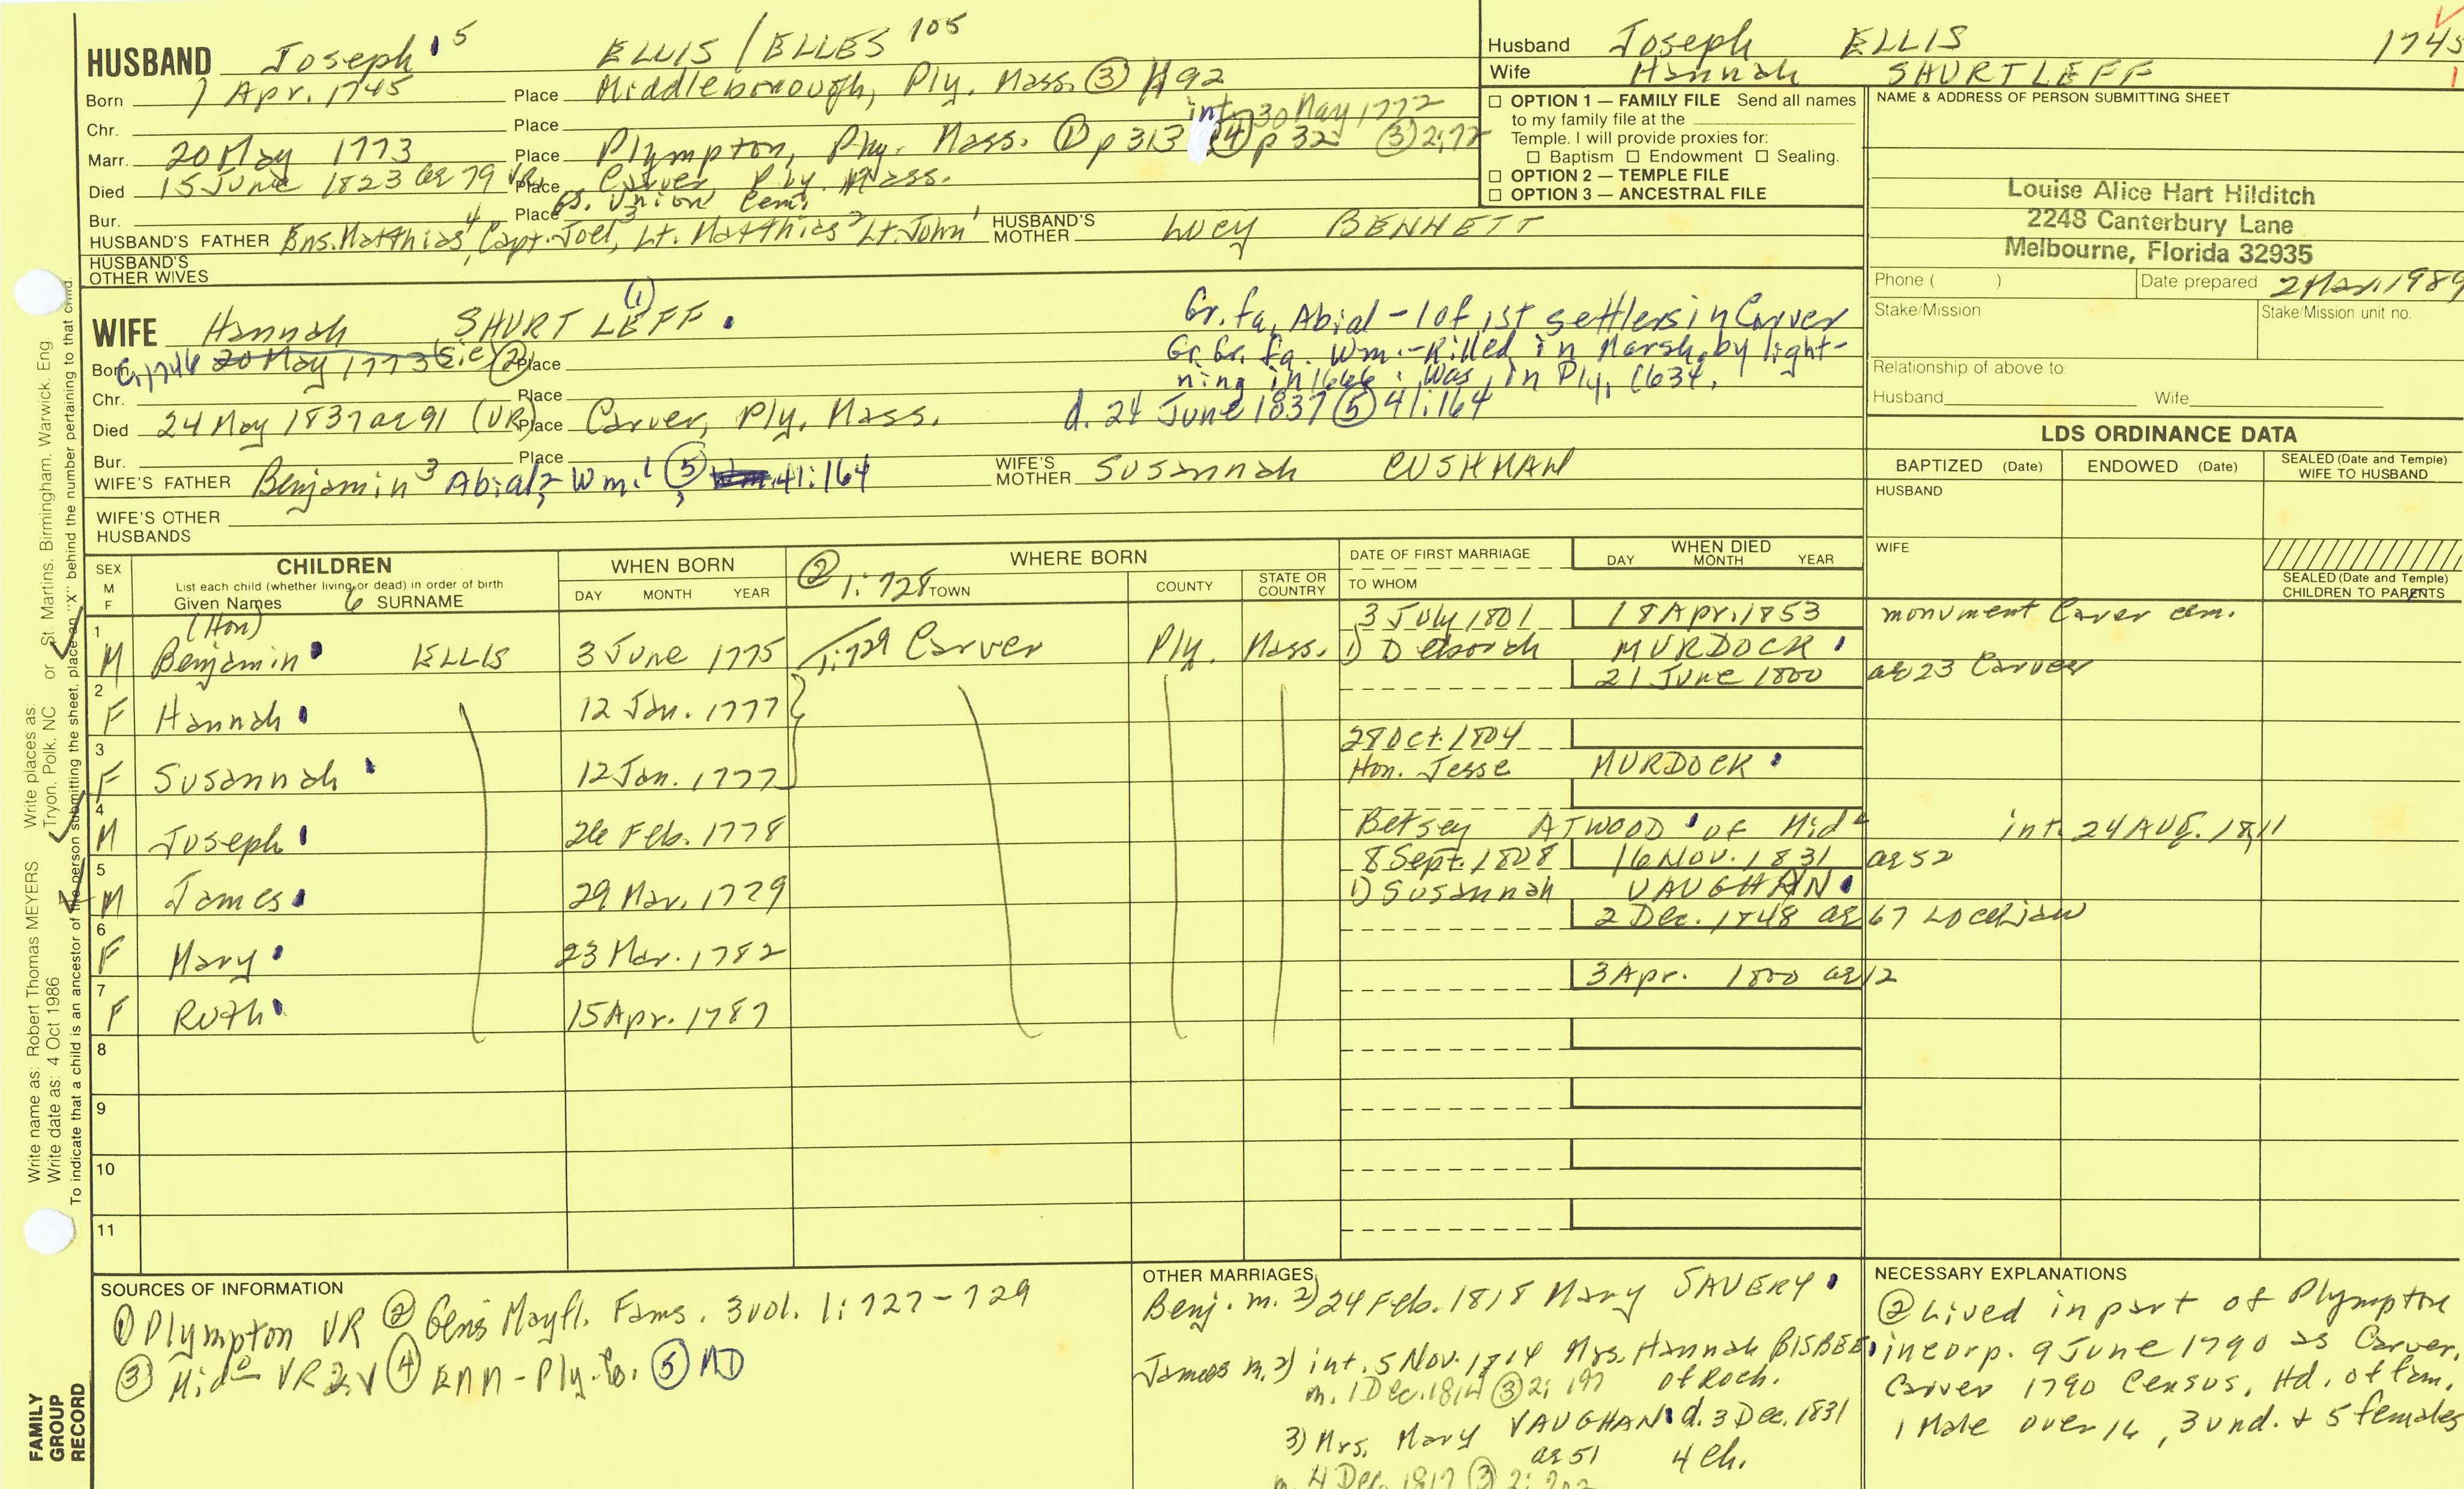 HUSBAND Joseph 5 ELLIS / ELLES 105
Born 7 Apr. 1745 Place Middleborough, Ply. Mass. ③ 1:92
Chr. Place int. 30 May 1772
Marr. 20 May 1773 Place Plympton, Ply. Mass. ① p 313 ④ p 32 ③ 2:72
Died 15 June 1823 ae 79 VR Place Carver, Ply. Mass.
Bur. Place GS. Union Cem.
HUSBAND'S FATHER Ens. Matthias 4, Capt. Joel 3, Lt. Matthias 2 Lt. John 1 HUSBAND'S MOTHER Lucy BENNETT
HUSBAND'S OTHER WIVES
Husband Joseph ELLIS 1745
Wife Hannah SHURTLEFF 1
☐ OPTION 1 — FAMILY FILE Send all names
to my family file at the
Temple. I will provide proxies for:
☐ Baptism ☐ Endowment ☐ Sealing.
☐ OPTION 2 — TEMPLE FILE
☐ OPTION 3 — ANCESTRAL FILE
NAME & ADDRESS OF PERSON SUBMITTING SHEET
Louise Alice Hart Hilditch
2248 Canterbury Lane
Melbourne, Florida 32935
Phone ( ) Date prepared 2 Mar. 1989
Stake/Mission Stake/Mission unit no.
Relationship of above to:
Husband Wife
WIFE Hannah (1) SHURTLEFF
Born C. 1746 20 May 1773 Sic ② Place
Chr. Place
Died 24 May 1837 ae 91 (VR) Place Carver, Ply. Mass.
Bur. Place
WIFE'S FATHER Benjamin 3 Abial 2, Wm. 1 ⑤, 41:164 WIFE'S MOTHER Susannah CUSHMAN
WIFE'S OTHER HUSBANDS
Gr. fa. Abial - 1 of 1st settlers in Carver
Gr. Gr. fa. Wm. - Killed in Marsh. by light-
ning in 1666; was in Ply. 1634.
d. 24 June 1837 ⑤ 41:164
LDS ORDINANCE DATA
BAPTIZED (Date) ENDOWED (Date) SEALED (Date and Temple) WIFE TO HUSBAND
HUSBAND
WIFE
SEALED (Date and Temple) CHILDREN TO PARENTS
SEX M F
CHILDREN
List each child (whether living or dead) in order of birth
Given Names 6 SURNAME
WHEN BORN
DAY MONTH YEAR
② 1:728
WHERE BORN
TOWN COUNTY STATE OR COUNTRY
DATE OF FIRST MARRIAGE
TO WHOM
WHEN DIED
DAY MONTH YEAR
1 M (Hon) Benjamin ELLIS 3 June 1775 1:729 Carver Ply. Mass. 3 July 1801 18 Apr. 1853 monument Carver cem.
1) Deborah MURDOCK
2 F Hannah 12 Jan. 1777 21 June 1800 ae 23 Carver
3 F Susannah 12 Jan. 1777 28 Oct. 1804
Hon. Jesse MURDOCK
4 M Joseph 26 Feb. 1778 Betsey ATWOOD of Mido int. 24 Aug. 1811
5 M James 29 Mar. 1779 8 Sept. 1808 16 Nov. 1831 ae 52
1) Susannah VAUGHAN
6 F Mary 23 Mar. 1782 2 Dec. 1848 ae 67
7 F Ruth 15 Apr. 1787 3 Apr. 1800 ae 12
8
9
10
11
SOURCES OF INFORMATION
① Plympton VR ② Gens Mayfl. Fams. 3 vol. 1:727-729
③ Mido VR 2 v ④ EAM - Ply. Co. ⑤ MD
OTHER MARRIAGES
Benj. m. 2) 24 Feb. 1818 Mary SAVERY
James m. 2) int. 5 Nov. 1814 Mrs. Hannah BISBEE
m. 1 Dec. 1814 ③ 2:197 of Roch.
3) Mrs. Mary VAUGHAN d. 3 Dec. 1831
ae 51 4 ch.
m. 4 Dec. 1817 ③ 2:202
NECESSARY EXPLANATIONS
② Lived in part of Plympton
incorp. 9 June 1790 as Carver.
Carver 1790 Census, Hd. of fam.
1 Male over 16, 3 und. + 5 females
FAMILY GROUP RECORD
Write name as: Robert Thomas MEYERS Write places as: Tryon, Polk, NC or St. Martins, Birmingham, Warwick, Eng
Write date as: 4 Oct 1986
To indicate that a child is an ancestor of the person submitting the sheet, place an "X" behind the number pertaining to that child.